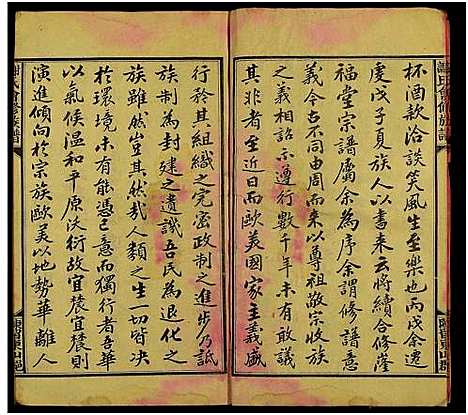 杯酒款洽談笑風生至樂也丙戌余還
虔戊子夏族人以書来云將續合修
福堂宗譜屬余為序余謂修譜意
義今古不同由周而来以尊祖敬宗收族
之義相詔示遵行數千年未有以
其非者至近日而歐美國家主義盛
行矜其組織之完密政制之進步乃詆
族制為封建之遺譏吾民為退化之
族雖然豈其然哉人類之生一切皆决
於環境未有能憑己意而獨行者吾華
以氣候温和平原沃衍故宜農宜農則
演進傾向於宗族歐美以地勢華離人